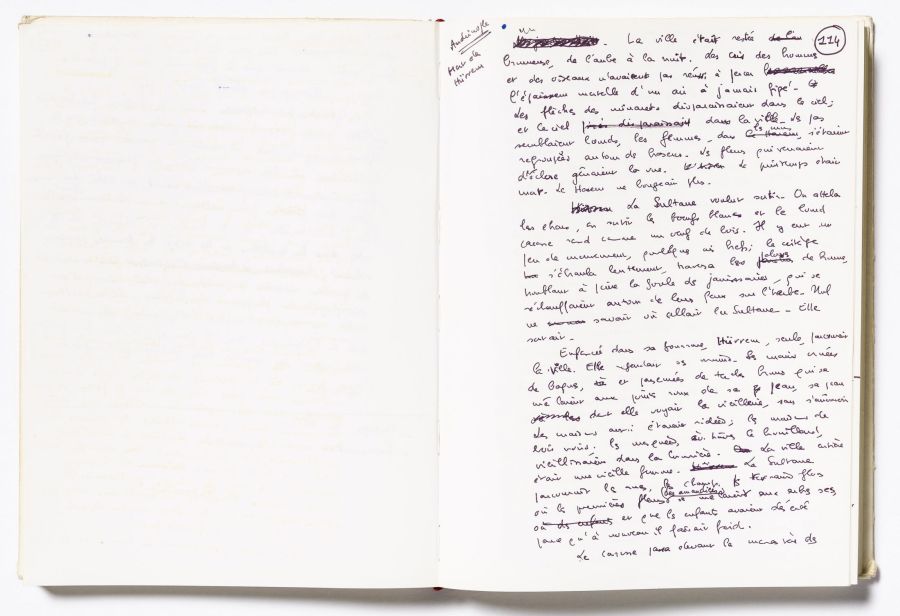 114
Mort de
Hürrem
La ville était resté
brumeuse, de l'aube à la nuit. Les cris des hommes
et des oiseaux n'avaient pas réussi à percer
l'épaisseur mortelle d'un air à jamais figé.
Les flèches des minarets disparaissaient dans le ciel;
et le ciel dans la ville. Les pas
semblaient lourds, les femmes, dans s'étaient
regroupées autour de braseros. Les fleurs qui venaient
d'éclore gênaient la vue. Le printemps était
mort. Le Harem ne bougeait plus.
La Sultane voulut sortir. On attela
les chars, on sortit les boeufs blancs et le lourd
carosse rond comme un oeuf de bois. Il y eut un
peu de mouvement, quelques cris brefs; le cortège
s'ébranla lentement, traversa les de brume,
troublant à peine la foule de janissaires, qui se
réchauffaient autour de leurs feux sur l'herbe. Nul
ne savait où allait la Sultane. Elle
sortait.
Enfoncée dans sa fourrure, Hürrem, seule, parcourait
la ville. Elle regardait ses mains. Les mains ornées
de bagues, et parsemées de taches brunes qui se
mêlaient aux poils roux de sa peau, sa peau
dont elle voyait la vieillesse, sans s'émouvoir
Les maisons aussi étaient ridées; les maisons de
bois noirci. les mosquées, à travers le brouillard,
vieillissaient dans la lumière. La ville entière
était une vieille femme. La Sultane
parcourait les rues, les champs, les terrains
où les premières fleurs des amandiers se mêlaient aux
et que les enfants avaient déserté
parce qu'à nouveau il faisait froid.
Le carosse passa devant le monastère des